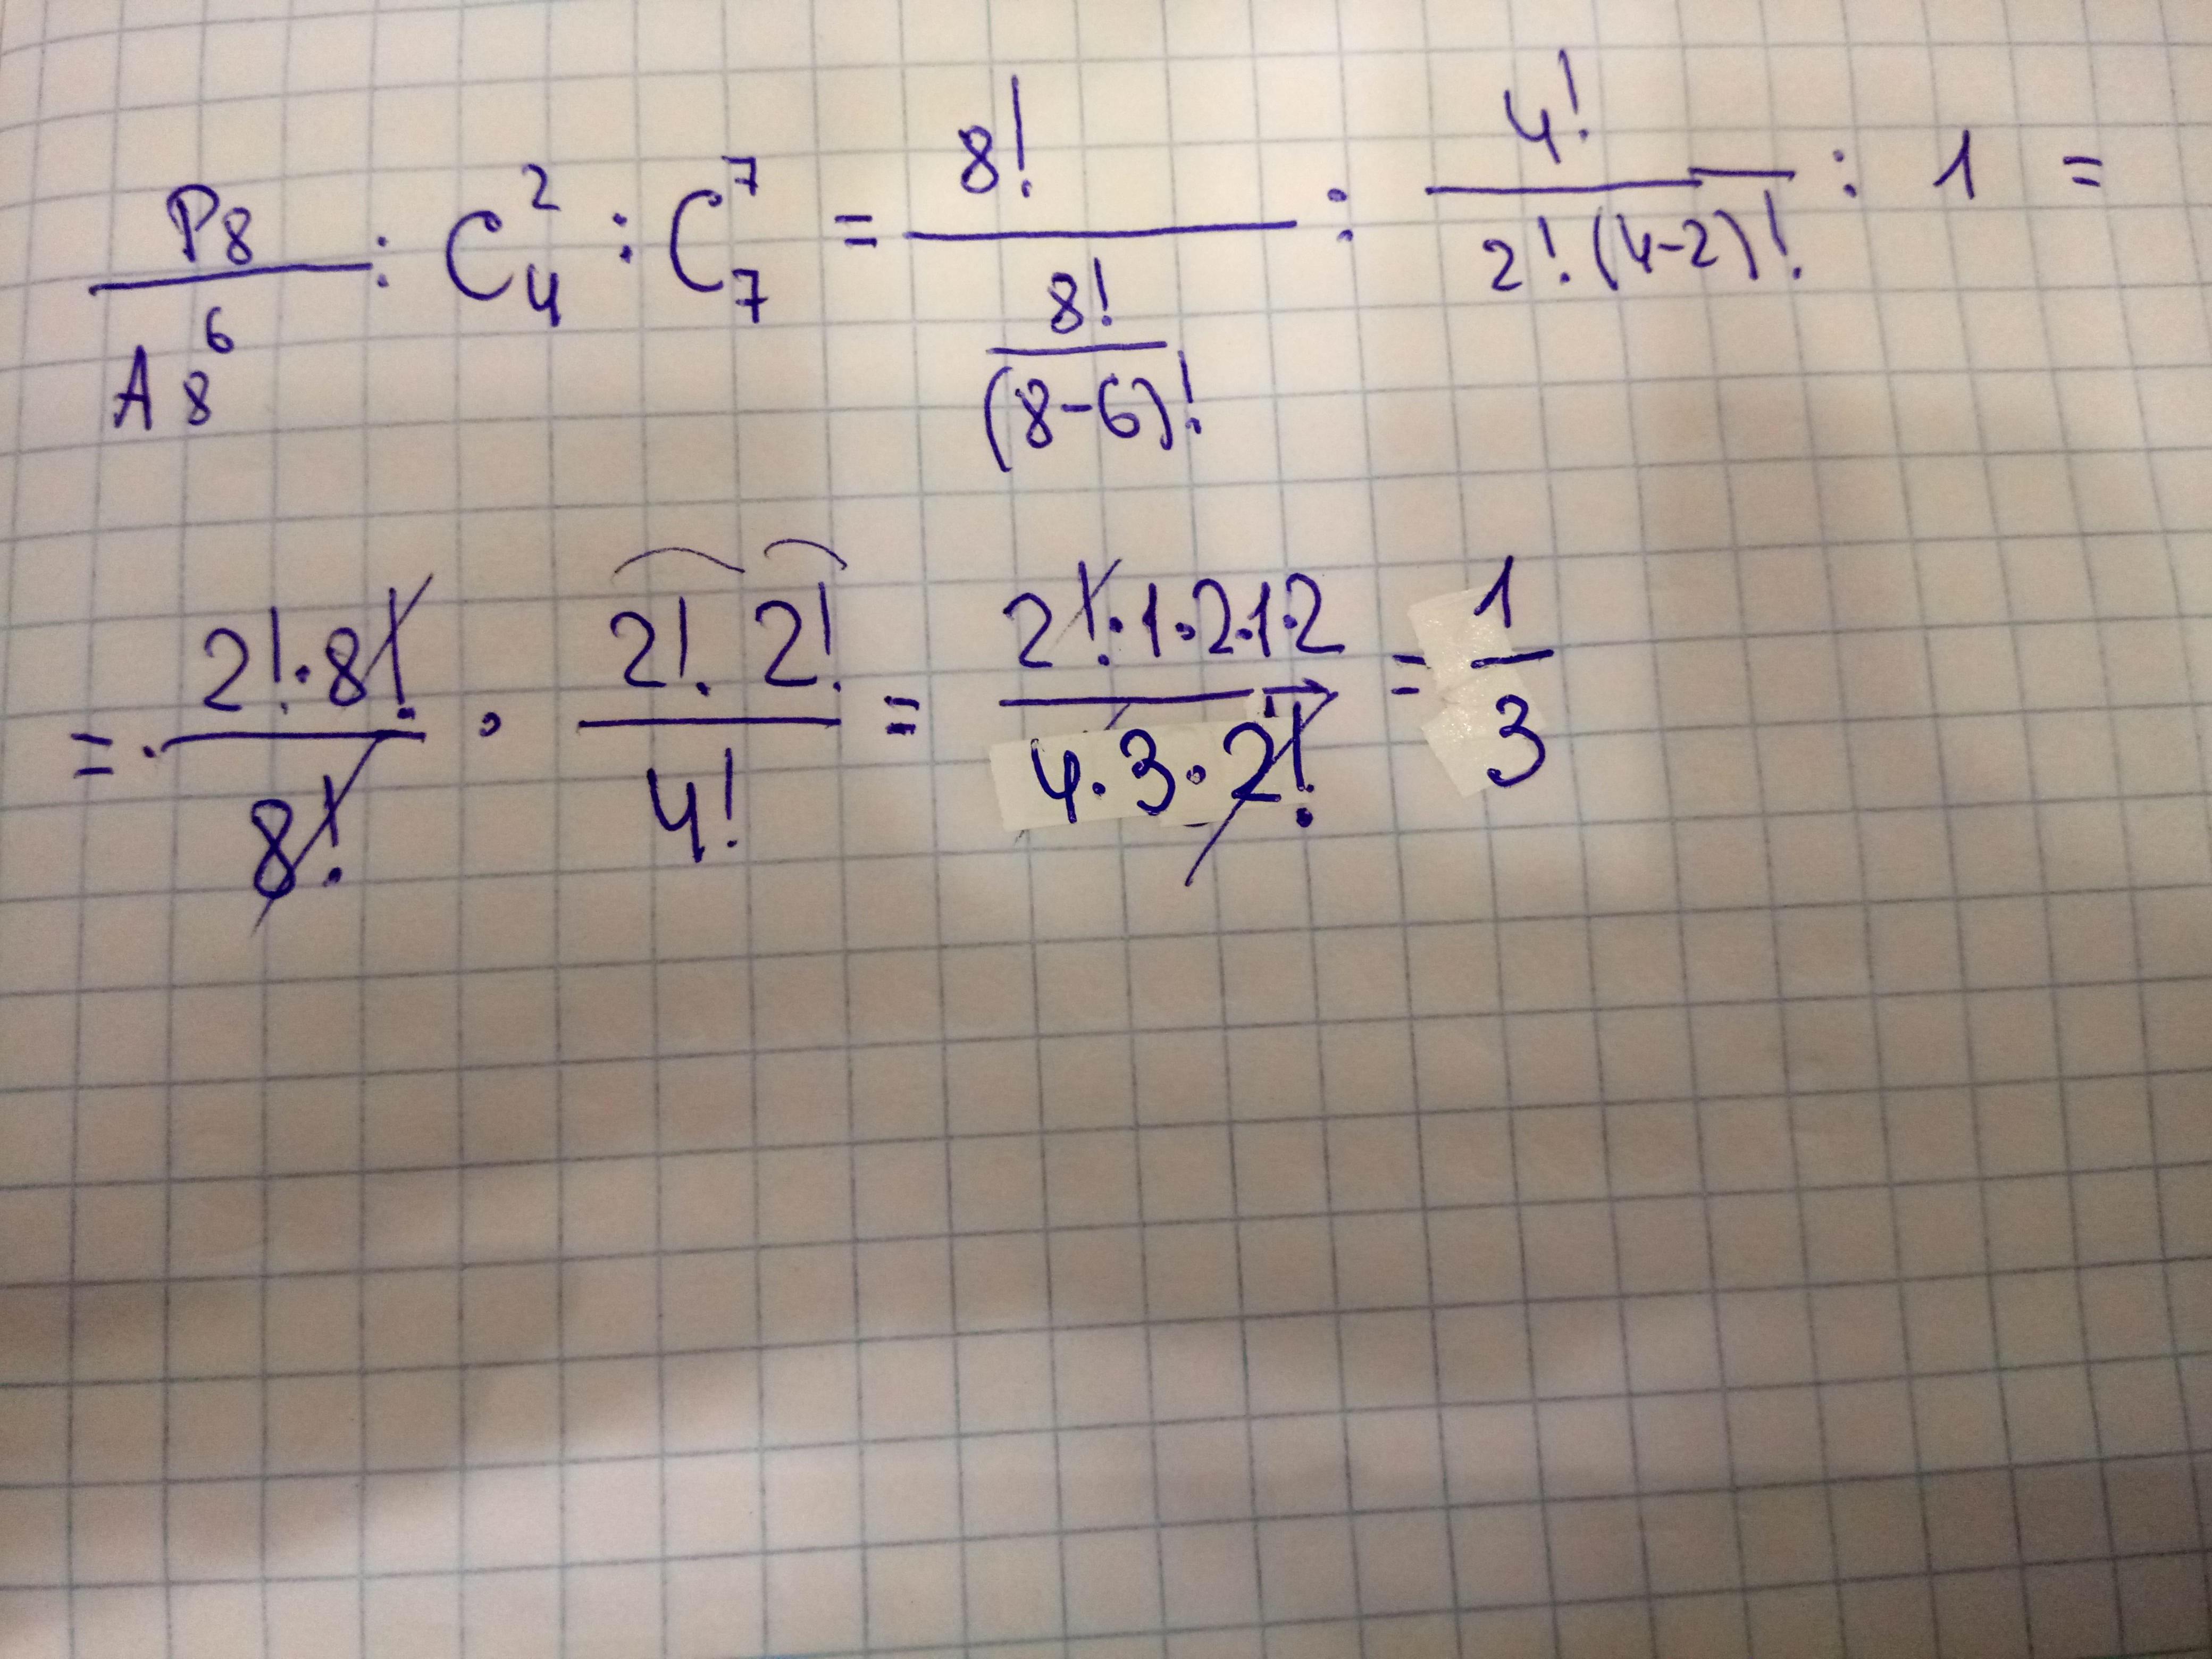 P8/A_8^6 : C_4^2 : C_7^7 = 8!/(8!/(8-6)!) : 4!/(2!(4-2)!) : 1 =
= (2!·8!)/8! · (2! 2!)/4! = (2!·1·2·1·2)/(4·3·2!) = 1/3